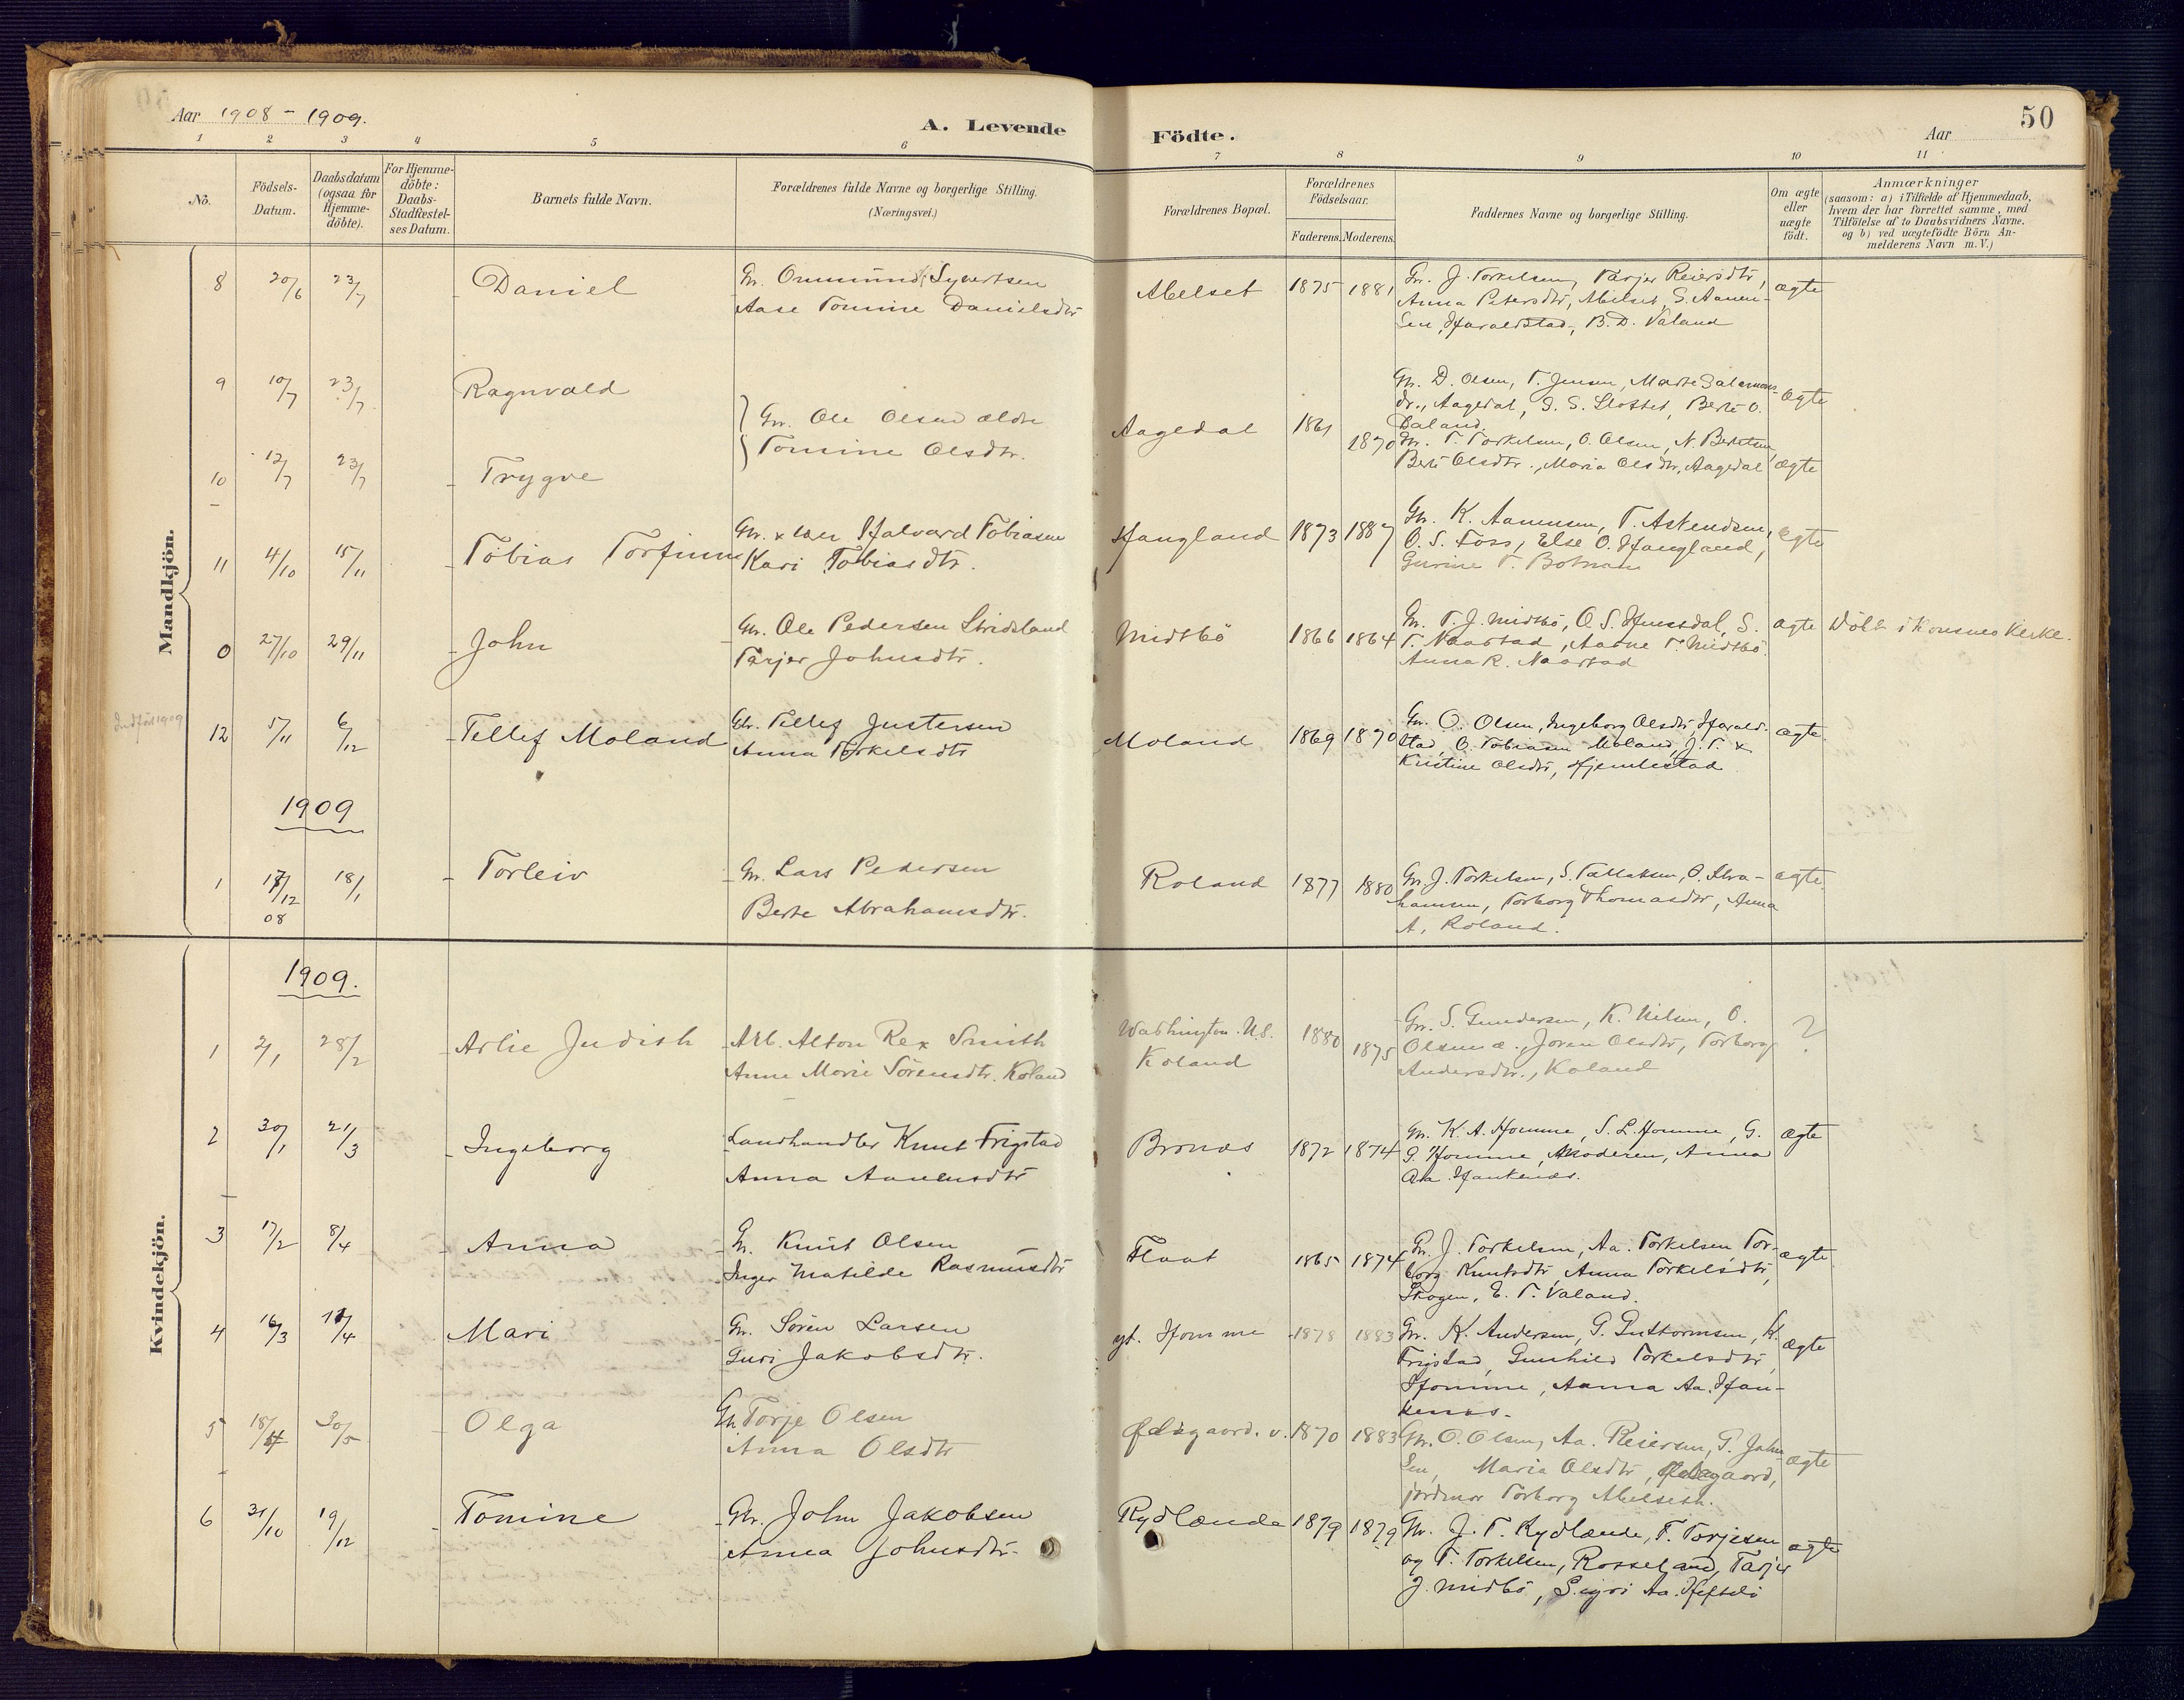 Aar 1908 - 1909.
A. Levende Födte.
Aar
50
1 2 3 4 5 6 7 8 9 10 11
No.
Födsels-Datum.
Daabsdatum (ogsaa for Hjemme-döbte).
For Hjemme-döbte: Daabs-Stadfæstel-ses Datum.
Barnets fulde Navn.
Forældrenes fulde Navne og borgerlige Stilling. (Næringsvei.)
Forældrenes Bopæl.
Forældrenes Födselsaar.
Faderens. Moderens.
Faddernes Navne og borgerlige Stilling.
Om ægte eller uægte födt.
Anmærkninger
(saasom: a) i Tilfælde af Hjemmedaab, hvem der har forrettet samme, med Tilföielse af to Daabsvidners Navne. og b) ved uægtefödte Börn An-melderens Navn m. V.)
Mandkjön.
8 20/6 23/7 Daniel
Gr. Ommund Syvertsen
Aase Tomine Danielsdtr
Abelset 1875 1881
Gr. J. Torkelsen, Tarjer Reiersdtr,
Anna Petersdtr, Abelset, S. Aanen-
sen, Haraldstad, B. D. Valand
ægte
9 10/7 23/7 Ragnvald
Gr. Ole Olsen ældre
Tomine Olsdtr.
Aagedal 1861 1870
Gr. D. Olsen, T. Jensen, Marte Salamons-
dr., Aagedal, S. S. Slottet, Berte O.
Daland.
ægte
10 12/7 23/7 Trygve
Gr. T. Torkelsen, O. Olsen, N. Bertsen,
Berte Olsdtr., Maria Olsdtr, Aagedal
ægte
11 4/10 15/11 Tobias Torfinn
Gr. x Halvard Tobiasen
Kari Tobiasdtr.
Haugland 1873 1887
Gr. K. Aanensen, T. Askendsen,
O. S. Foss, Else O. Haugland,
Gurine T. Botnan
ægte
0 27/10 29/11 John
Gr. Ole Pedersen Stridsland
Tarjer Johnsdtr.
Midtbö 1866 1864
Gr. T. J. Midtbö, O. S. S.
T. Naastad, Aasne T. Midtbö.
Anna R. Naastad
ægte Döbt i Konsmo Kirke.
Indført 1909
12 5/11 6/12 Tellef Moland
Gr. Tellef Justersen
Anna Torkelsdtr
Moland 1869 1870
Gr. O. Olsen, Ingeborg Olsdtr, Harald-
stad, O. Tobiasen Moland, J. T. x
Kristine Olsdtr, Hjemlestad
ægte
1909
1 17/12 08 18/1 Torleiv
Gr. Lars Pedersen
Berte Abrahamsdtr.
Roland 1877 1880
Gr. J. Torkelsen, S. Tallaksen, O. Abra-
hamsen, Torborg Thomasdtr, Anna
A. Roland.
ægte.
Kvindekjön.
1909.
1 2/1 28/2 Arlie Judith
Arb. Alton Rex Smith
Anne Marie Sörensdtr. Roland
Washington. U.S.
Roland
1880 1875
Gr. S. Gundersen, K. Nilsen, O.
Olsen æ., Joren Olsdtr, Torborg
Andersdtr., Roland
?
2 30/1 21/3 Ingeborg
Landhandler Knut Frigstad
Anna Aanensdtr
Bronæs 1872 1874
Gr. K. A. Homme, S. L. Homme, G.
G. Homme, Moderen, Anna
Aa. Haukenæs.
ægte
3 17/2 8/4 Anna
Gr. Knut Olsen
Inger Matilde Rasmusdtr
Flaat 1865 1874
Gr. J. Torkelsen, Aa. Torkelsen, Tor-
borg Knutsdtr, Anna Torkelsdtr,
Skogen, E. T. Valand.
ægte
4 16/3 11/4 Mari
Gr. Sören Larsen
Guri Jakobsdtr.
yt. Homme 1878 1883
Gr. K. Andersen, G. Guttormsen, K.
Frigstad, Gunhild Torkelsdtr
Homme, Aanna Aa. Hau-
kenæs.
ægte
5 18/4 30/5 Olga
Gr. Torje Olsen
Anna Olsdtr
Ødegaard. v. 1870 1883
Gr. O. Olsen, Aa. Reiersen, P. John-
sen, Maria Olsdtr, Ødegaard,
jordmor Torborg Abelseth.
ægte
6 31/10 19/12 Tomine
Gr. John Jakobsen
Anna Johnsdtr.
Rydlænde 1879 1879
Gr. J. T. Rydlænde, T. Torjesen
og T. Torkelsen, Rosseland, Tarjer
J. Midbö, Sigri Aa.
ægte